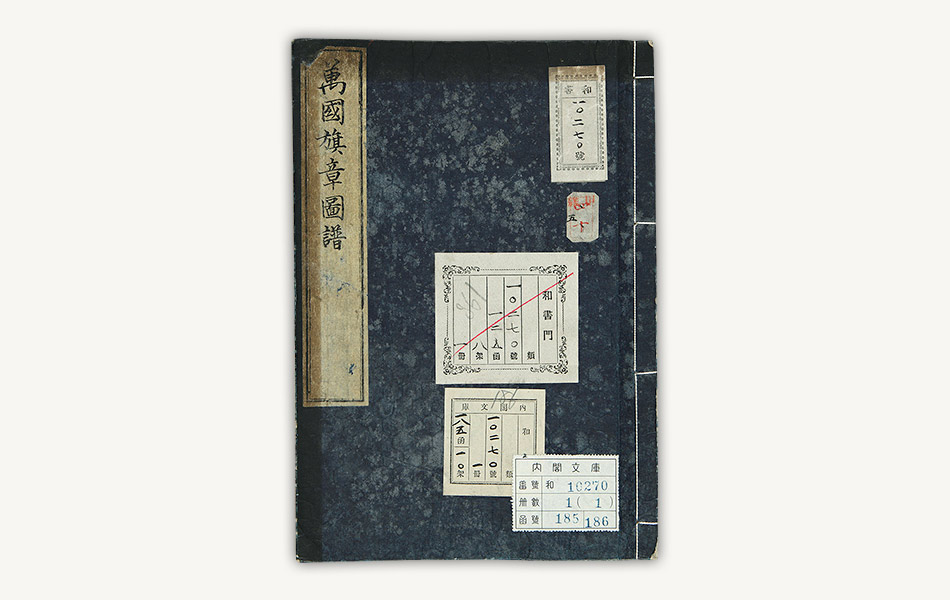 萬國旗章圖譜
和書
一〇二七〇號
五
和書門
類
一〇二七〇號
函
八架
一冊
內閣文庫
和
類
一〇二七〇號
一冊
一八五函
一〇架
內閣文庫
番號 和 10270
冊數 1 ( 1 )
函號 185 186